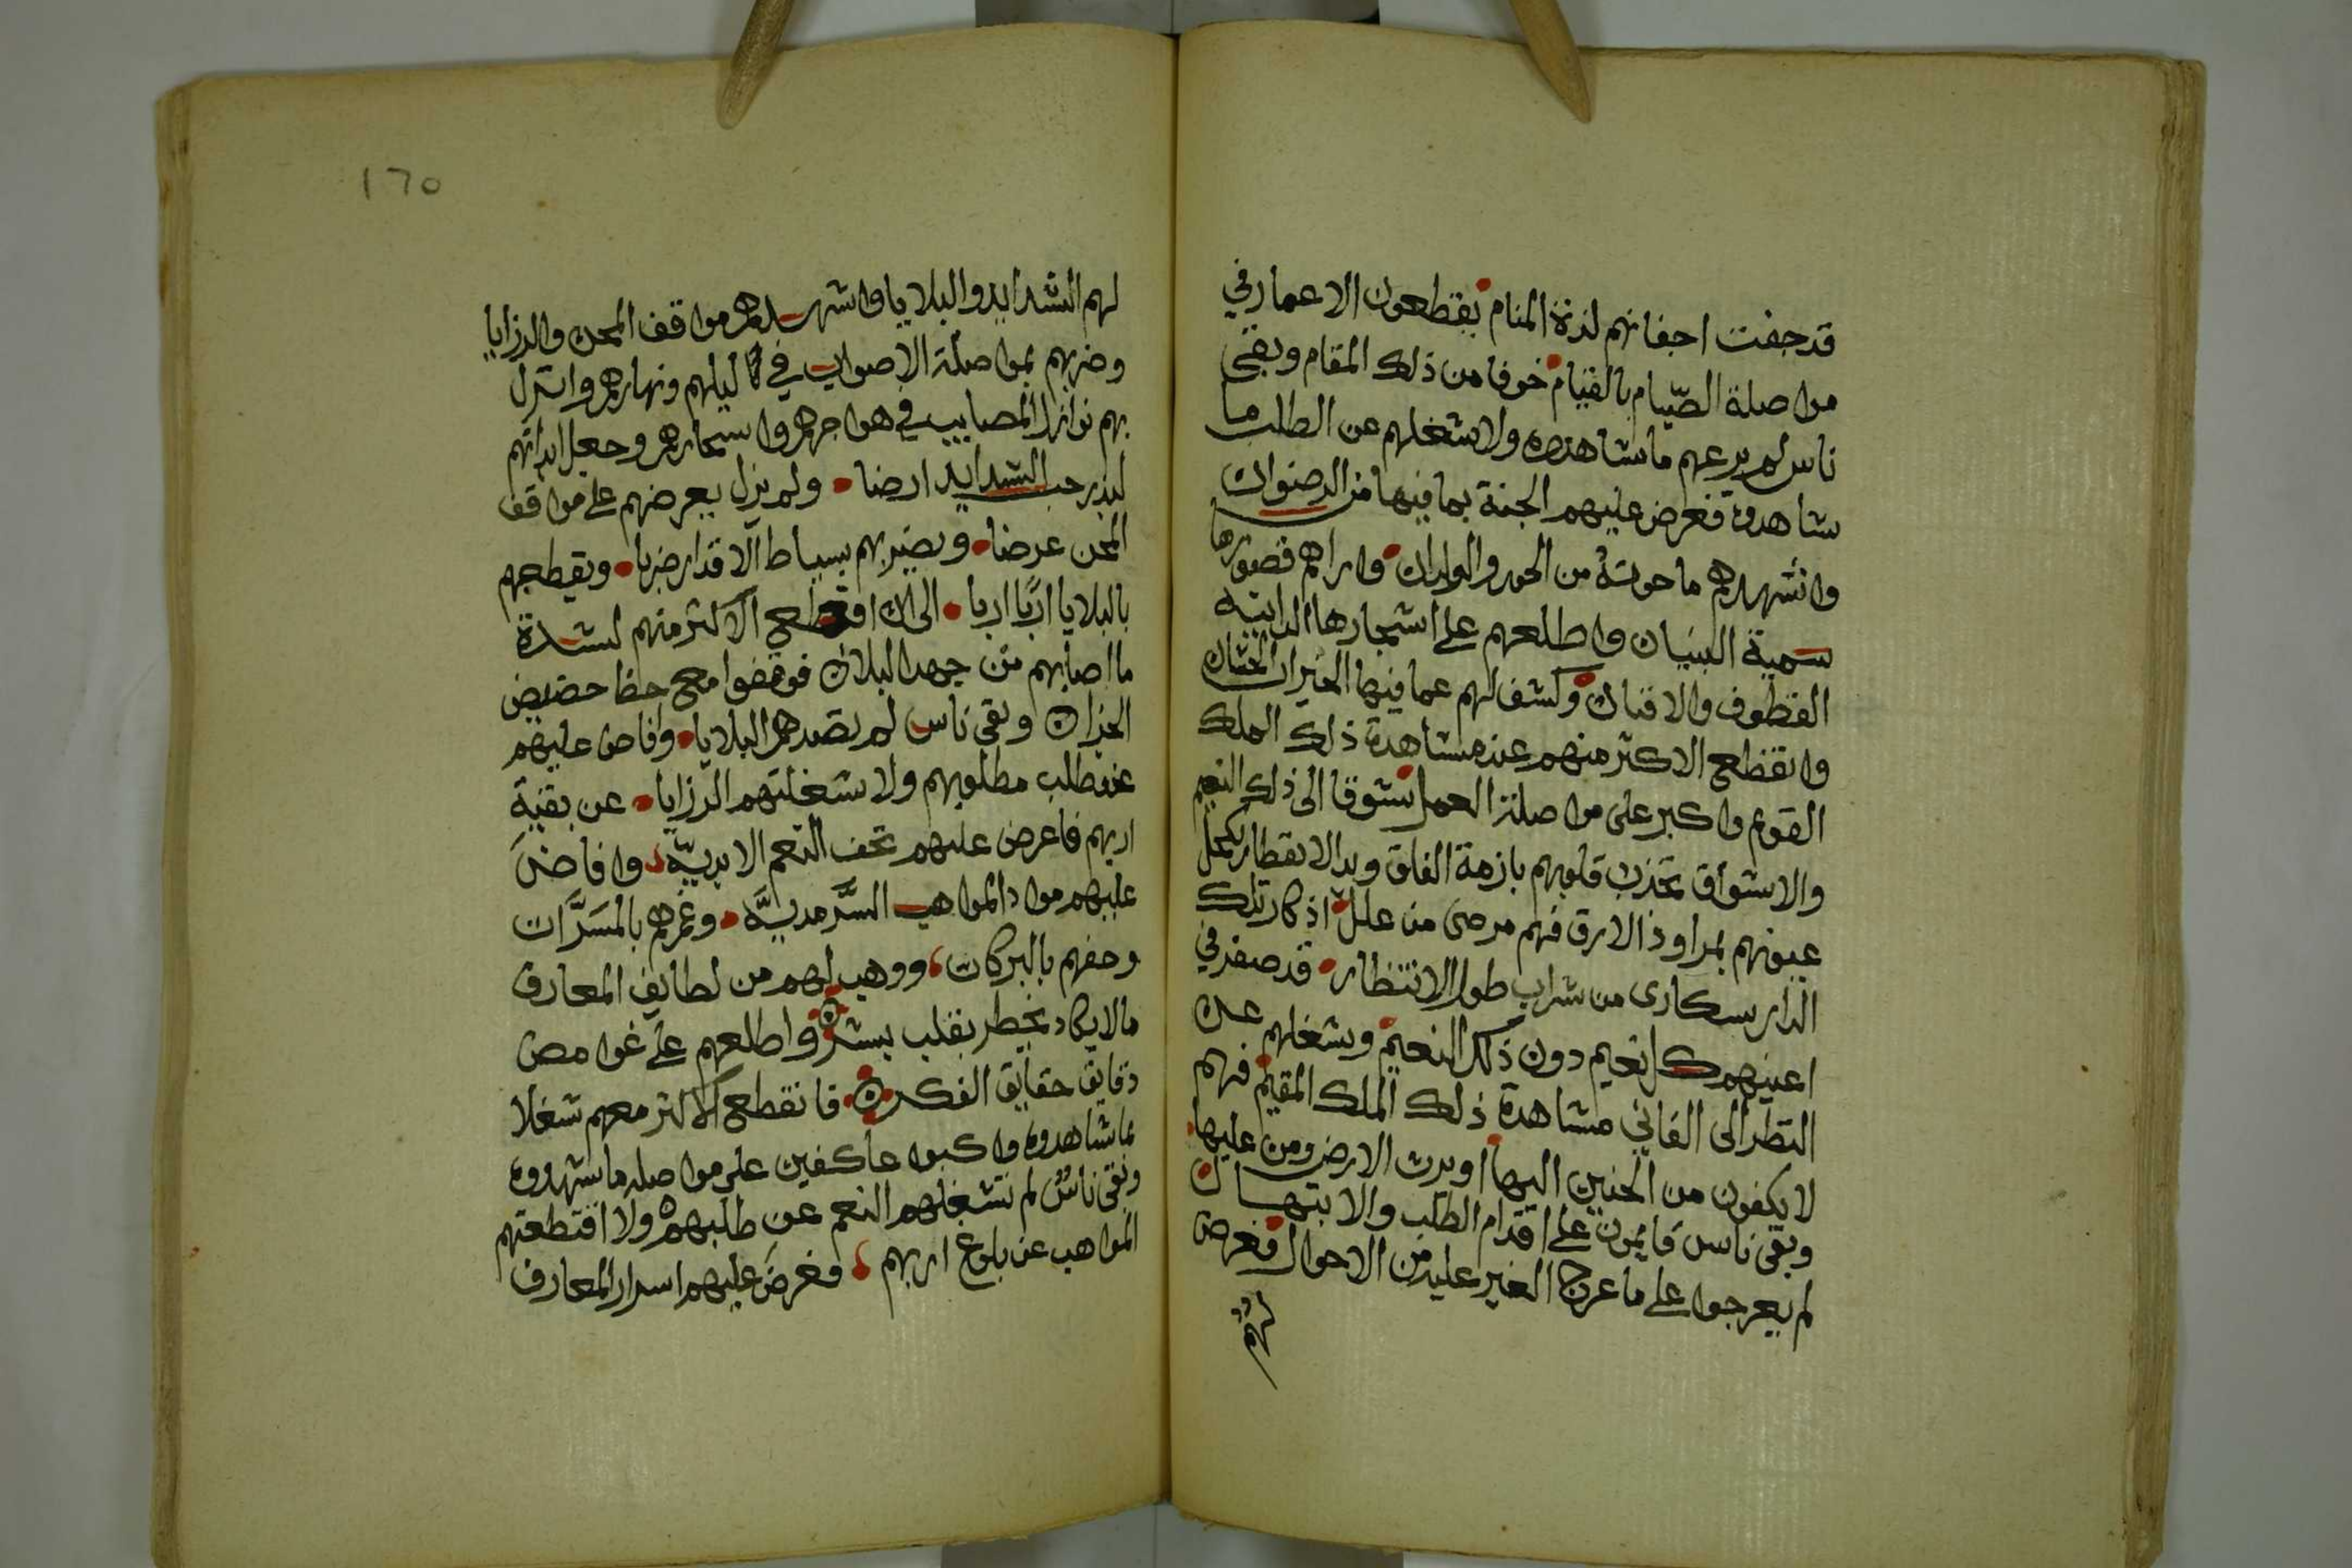 قد جفت اجفانهم لذة المنام يقطعون الاعمار في
مواصلة الصيام بالقيام خوفا من ذلك المقام وبقى
ناس لم يرعهم ما شاهدوه ولا شغلهم عن الطلب ما
شاهدوه فعرض عليهم الجنة بما فيها من الرضوان
واشهدهم ما حوته من الحور والولدان واراهم قصورها
سمية البنيان واطلعهم على اشجارها الدانية
القطوف والافنان وكشف لهم عما فيها الخيرات الحسان
وانقطع الاكثر منهم عند مشاهدة ذلك الملك
القوم واكبر على مواصلة العمل شوقا الى ذلك النعيم
والاشواق تجذب قلوبهم بازمة القلق ويد الانتظار تكحل
عيونهم بمراود الارق فهم مرضى من علل اذكار تلك
الدار سكارى من شراب طول الانتظار قد صغر في
اعينهم كل نعيم دون ذلك النعيم وشغلهم عن
النظر الى الفاني مشاهدة ذلك الملك المقيم فهم
لا يكفون من الحنين اليها او يرث الارض ومن عليها
وبقى ناس قايمون على اقدام الطلب والابتهال
لم يعرجوا على ما عرج الغير عليه من الاحوال فعرض
لهم
١٦٥
لهم الشدايد والبلايا واشهدهم مواقف المحن والرزايا
وضربهم بمواصلة الاصواب في ليلهم ونهارهم وانزل
بهم نوازل المصايب في هواجرهم واسحارهم وجعل ابدانهم
لبذر حب الشدايد ارضا ولم يزل يعرضهم على مواقف
المحن عرضا ويضربهم بسياط الاقدار ضربا ويقطعهم
بالبلايا اربا اربا الى ان انقطع الاكثر منهم لشدة
ما اصابهم من جهد البلاء فوقفوا مع حظ حضيض
الخذلان وبقى ناس لم تصدهم البلايا وافاض عليهم
عن طلب مطلوبهم ولا شغلتهم الرزايا عن بقية
اربهم فاعرض عليهم تحف النعم الابدية وافاض
عليهم مواد المواهب السرمدية وغمرهم بالمسرات
وحفهم بالبركات ووهب لهم من لطايف المعارف
ما لا يكاد يخطر بقلب بشر واطلعهم على غوامض
دقايق حقايق الفكر فانقطع الاكثر معهم شغلا
بما شاهدوه واكبوا عاكفين على مواصله ما شهدوه
وبقى ناس لم تشغلهم النعم عن طلبهم ولا اقتطعتهم
المواهب عن بلوغ اربهم فعرض عليهم اسرار المعارف